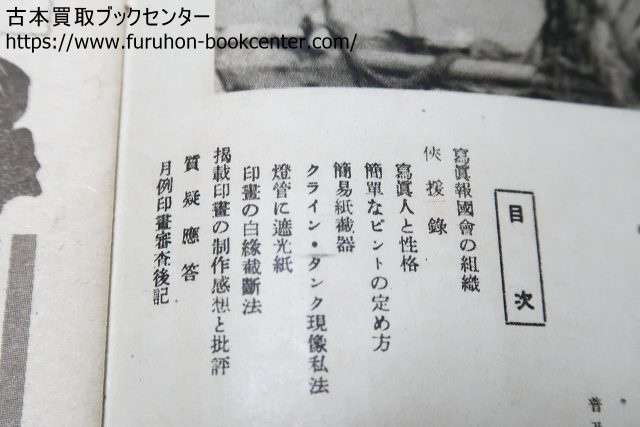 古本買取ブックセンター
https://www.furuhon-bookcenter.com/
目次
寫眞報國會の組織
俠援錄
寫眞人と性格
簡單なピントの定め方
簡易紙截器
クライン・タンク現像私法
燈管に遮光紙
印畫の白緣截斷法
揭載印畫の制作感想と批評
質疑應答
月例印畫審查後記
普